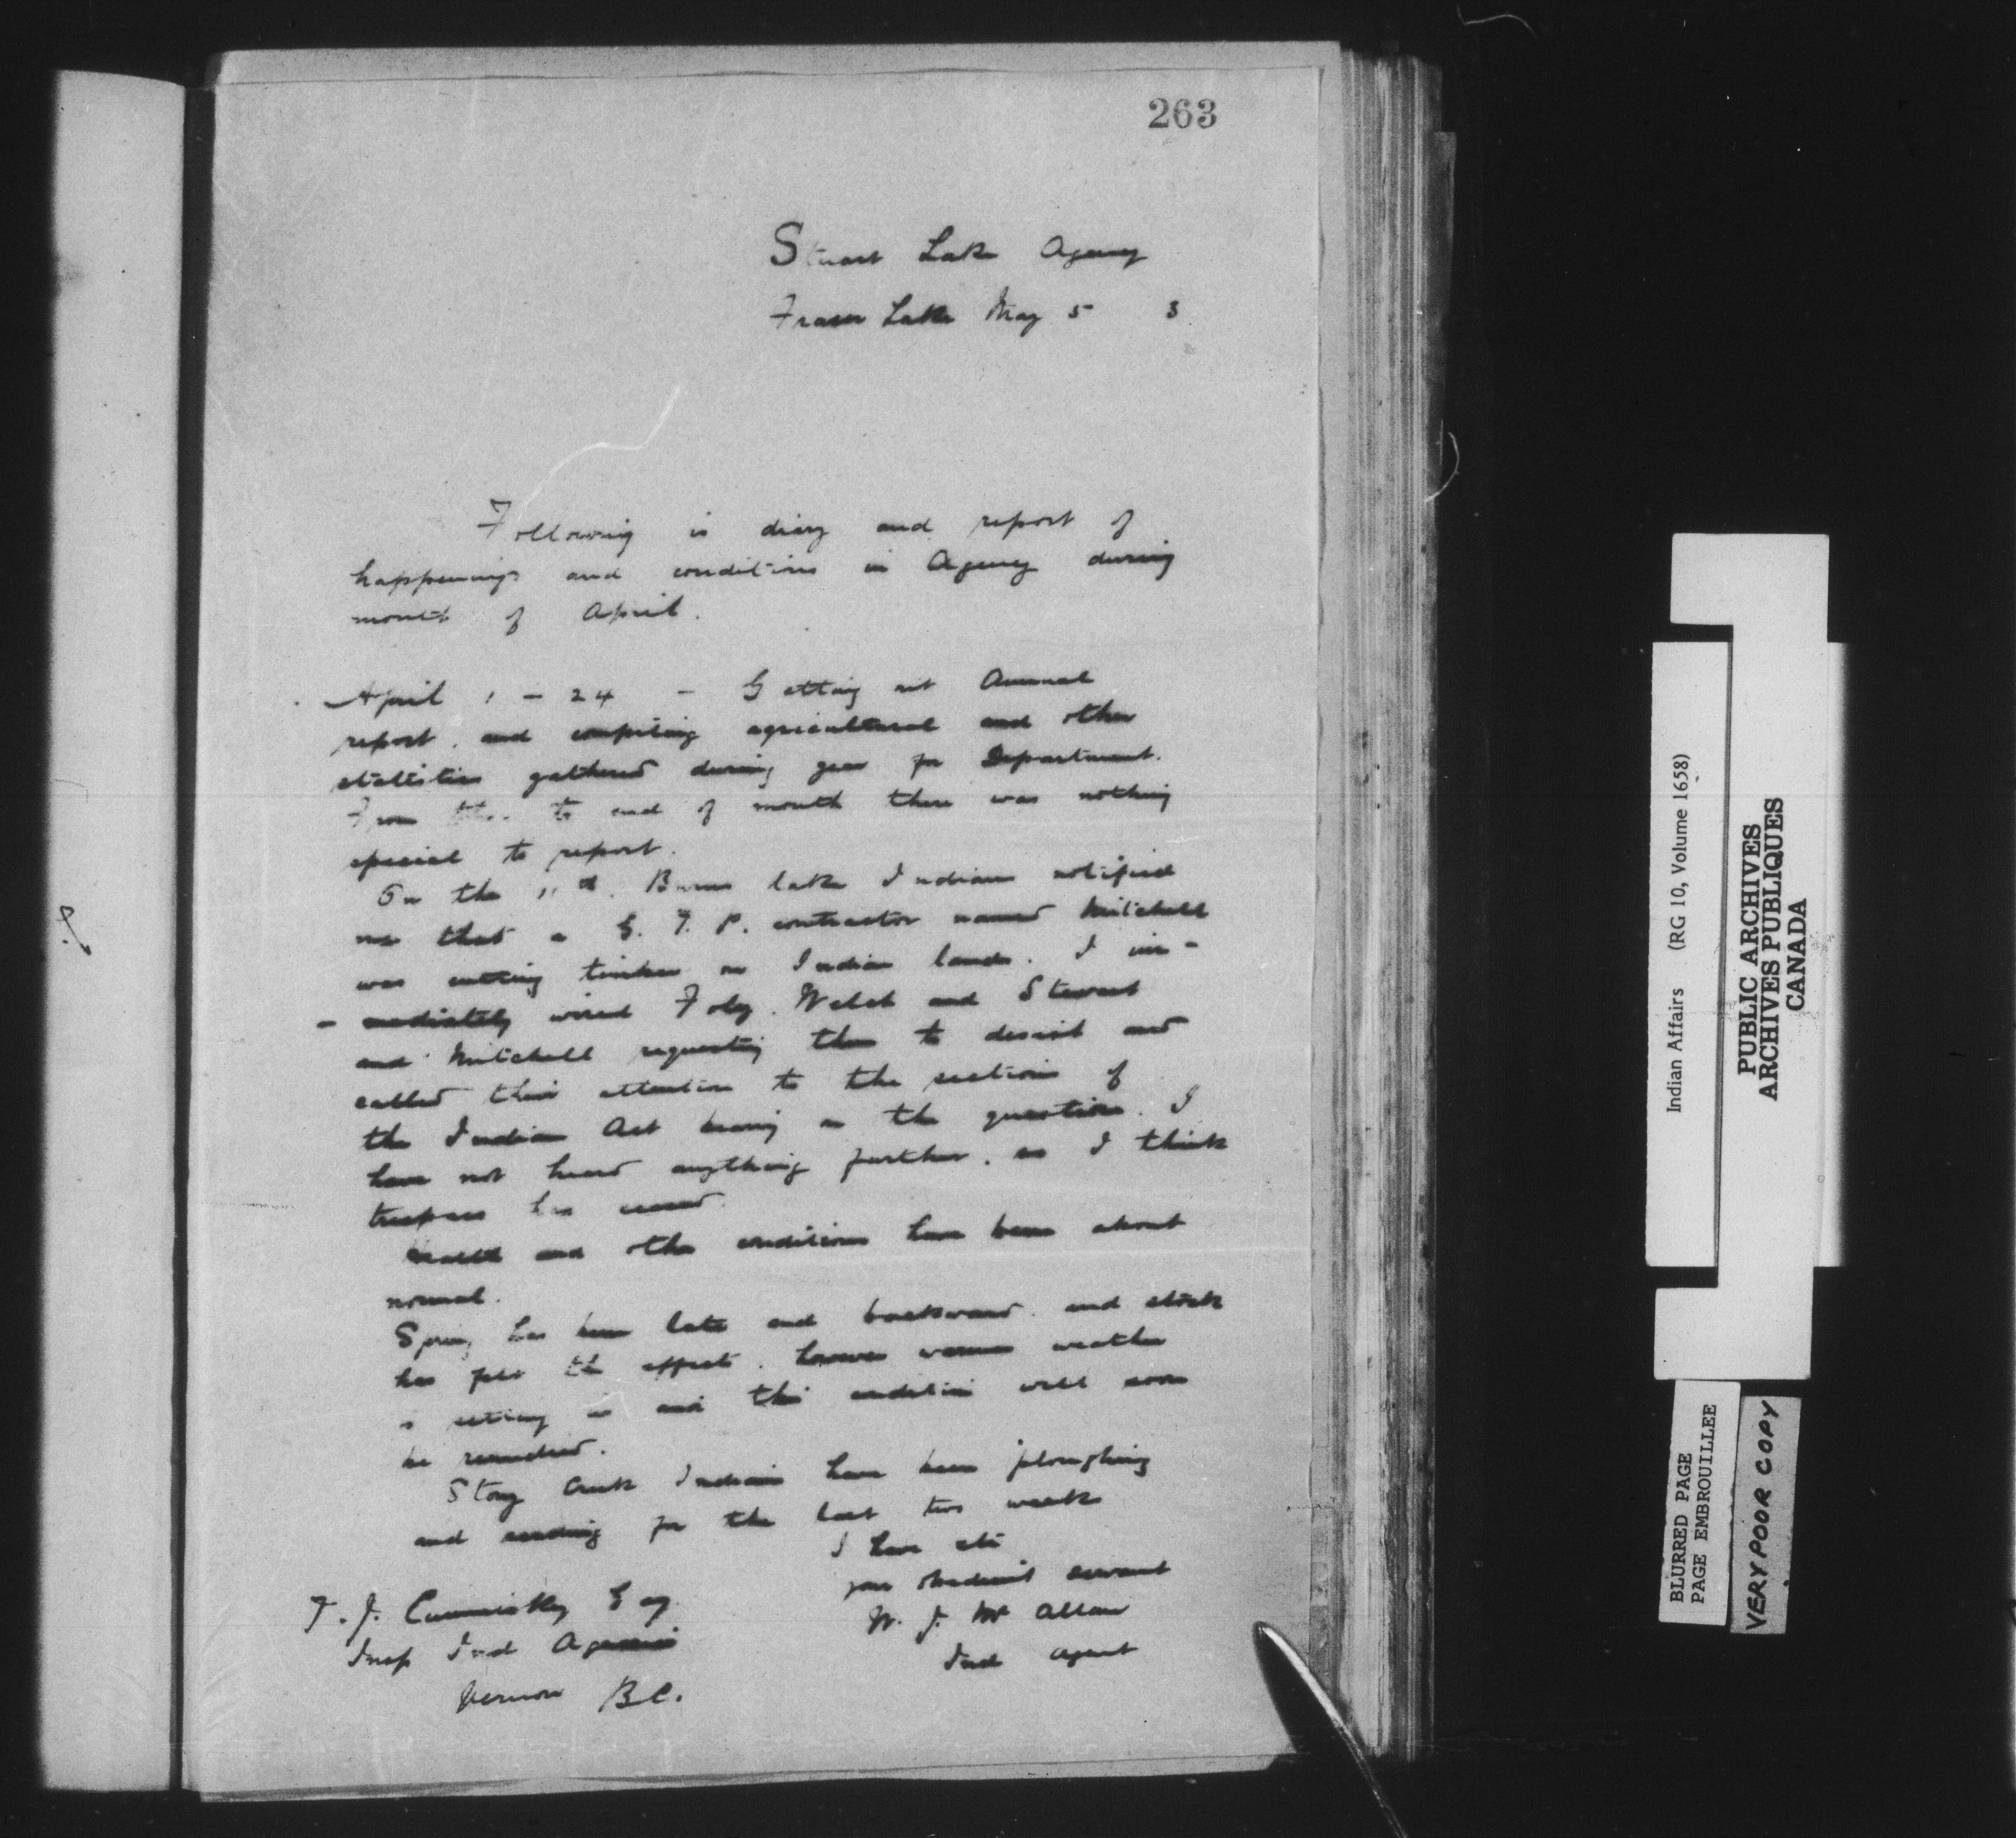 263
Stuart Lake Agency
Fraser Lake May 5 3
Following is diary and report of
happenings and conditions in Agency during
month of April.
April 1 - 24 - Getting out Annual
report, and compiling agricultural and other
statistics gathered during year for Department.
From to end of month there was nothing
special to report.
On the 11th. Burns lake Indians notified
me that a G. T. P. contractor named Mitchell
was cutting timber on Indian lands. I im-
- mediately wired Foley. Welch and Stewart
and Mitchell requesting them to desist and
called their attention to the sections of
the Indian Act bearing on the question. I
have not heard anything further, so I think
trespass has ceased.
Health and other conditions have been about
normal.
Spring has been late and backward. and stock
has felt the effects. however warmer weather
is setting in and this condition will soon
be remedied.
Stony Creek Indians have been ploughing
and seeding for the last two weeks
I have etc
your obedient servant
W. J. Mc Allan
Ind Agent
T. J. Cummiskey Esq
Insp Ind Agencies
Vernon B.C.
Indian Affairs (RG 10, Volume 1658)
PUBLIC ARCHIVES
ARCHIVES PUBLIQUES
CANADA
BLURRED PAGE
PAGE EMBROUILLEE
VERY POOR COPY